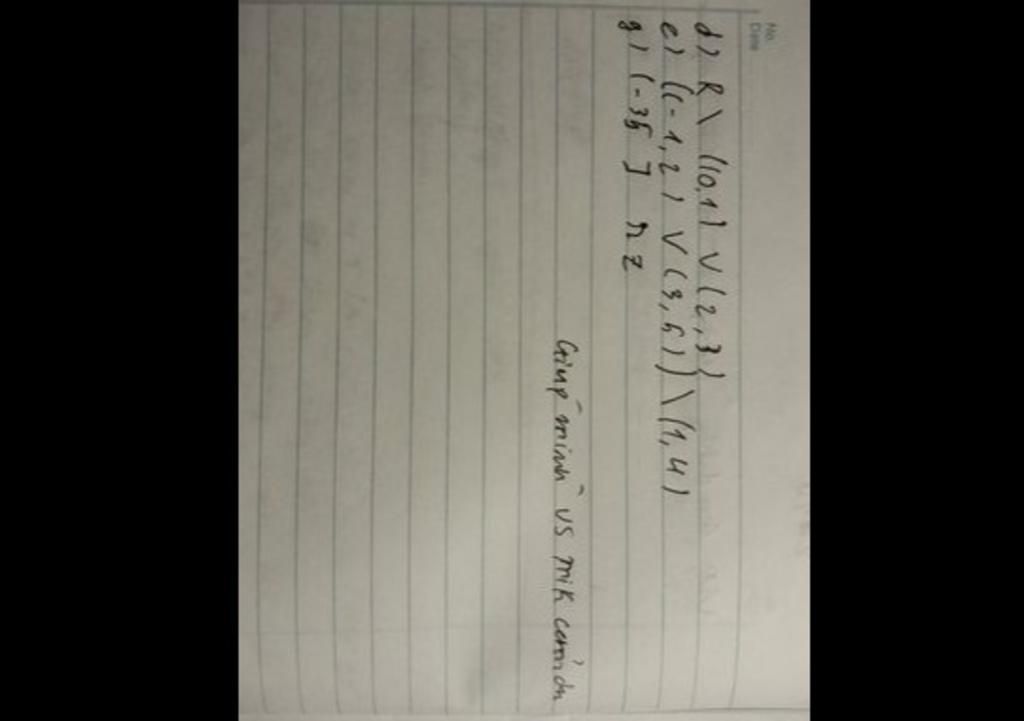 No.
Date
d) R \ ((0,1) ∨ (2,3)
e) ((-1,2) ∨ (3,5)) \ (1,4)
g) (-35] n z
Giup minh vs mik